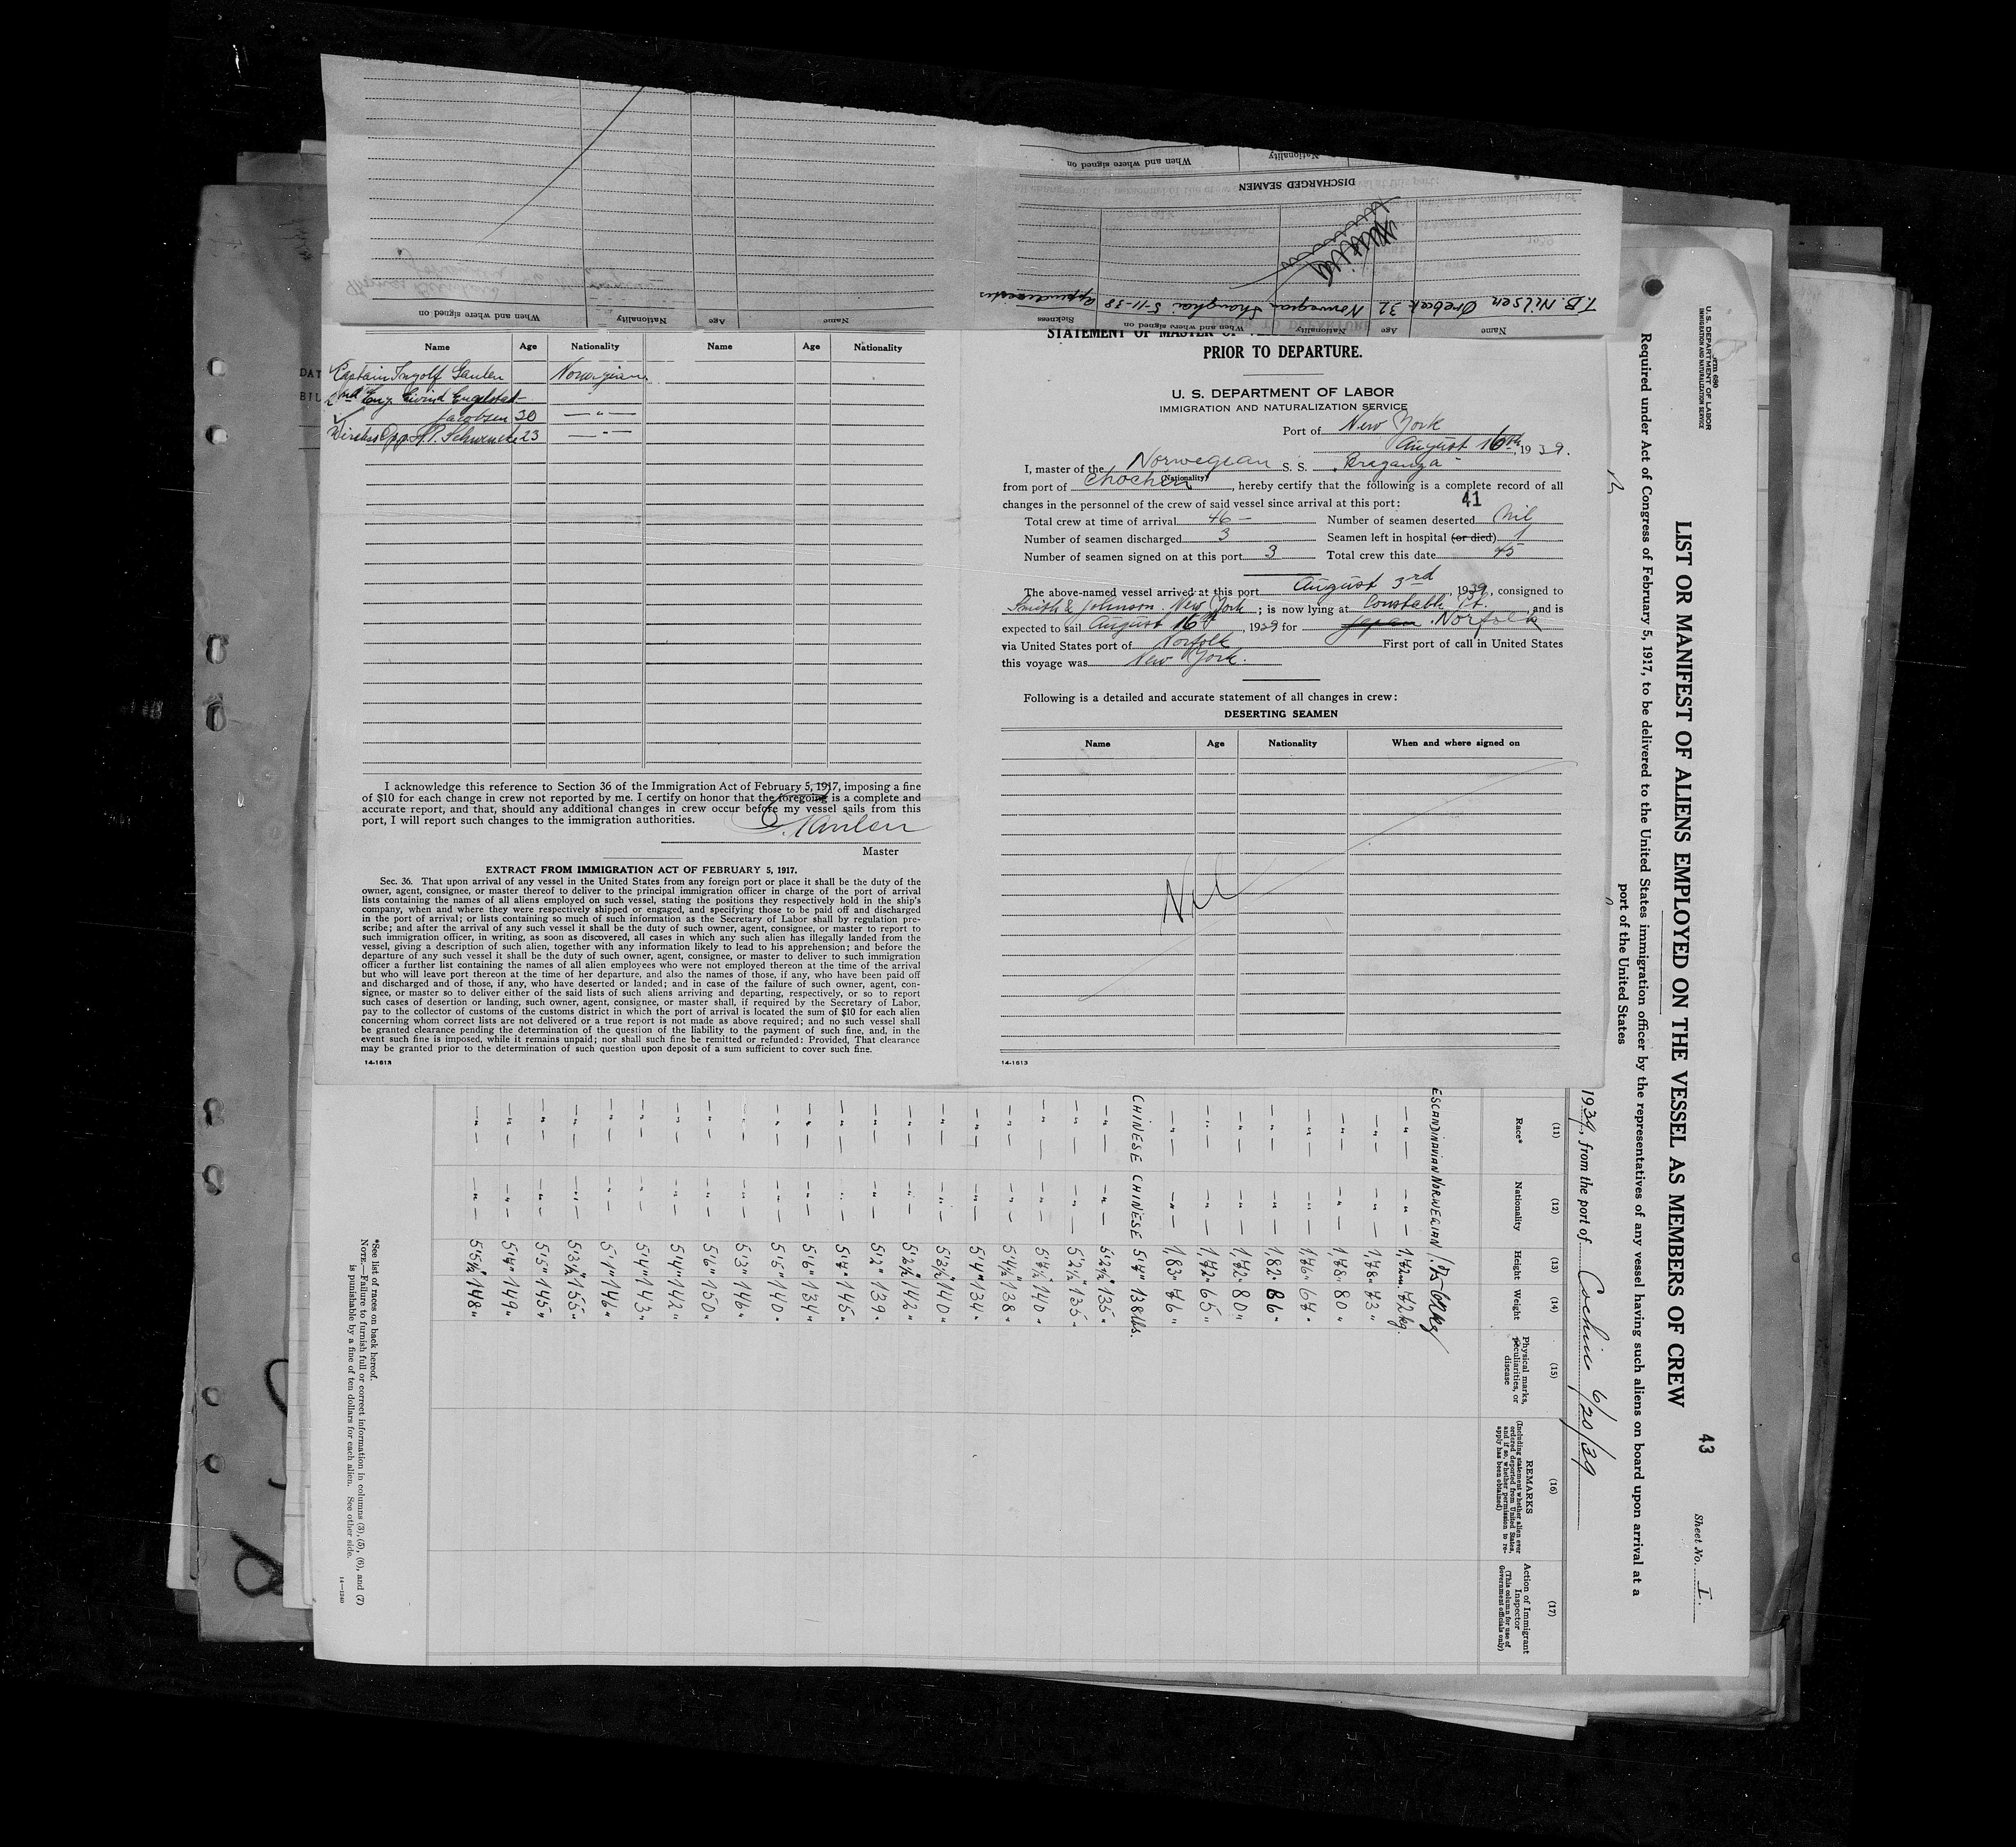 When and where signed on
Nationality
Age
Name
When and where signed on
Nationality
DISCHARGED SEAMEN
T.B. Nilsen Orebak 32 Norwegian Shanghai 5-11-38 appendicitis
Name
Age
Nationality
When and where signed on
Sickness
Name Age Nationality Name Age Nationality
Captain Ingolf Gaulen Norwegian
2nd Eng. Eivind Engelstad
Jacobsen 30 — " —
Wireless Opp. A.P. Schwencke 23 — " —
I acknowledge this reference to Section 36 of the Immigration Act of February 5, 1917, imposing a fine
of $10 for each change in crew not reported by me. I certify on honor that the foregoing is a complete and
accurate report, and that, should any additional changes in crew occur before my vessel sails from this
port, I will report such changes to the immigration authorities.
Master
EXTRACT FROM IMMIGRATION ACT OF FEBRUARY 5, 1917.
Sec. 36. That upon arrival of any vessel in the United States from any foreign port or place it shall be the duty of the
owner, agent, consignee, or master thereof to deliver to the principal immigration officer in charge of the port of arrival
lists containing the names of all aliens employed on such vessel, stating the positions they respectively hold in the ship's
company, when and where they were respectively shipped or engaged, and specifying those to be paid off and discharged
in the port of arrival; or lists containing so much of such information as the Secretary of Labor shall by regulation pre-
scribe; and after the arrival of any such vessel it shall be the duty of such owner, agent, consignee, or master to report to
such immigration officer, in writing, as soon as discovered, all cases in which any such alien has illegally landed from the
vessel, giving a description of such alien, together with any information likely to lead to his apprehension; and before the
departure of any such vessel it shall be the duty of such owner, agent, consignee, or master to deliver to such immigration
officer a further list containing the names of all alien employees who were not employed thereon at the time of the arrival
but who will leave port thereon at the time of her departure, and also the names of those, if any, who have been paid off
and discharged and of those, if any, who have deserted or landed; and in case of the failure of such owner, agent, con-
signee, or master so to deliver either of the said lists of such aliens arriving and departing, respectively, or so to report
such cases of desertion or landing, such owner, agent, consignee, or master shall, if required by the Secretary of Labor,
pay to the collector of customs of the customs district in which the port of arrival is located the sum of $10 for each alien
concerning whom correct lists are not delivered or a true report is not made as above required; and no such vessel shall
be granted clearance pending the determination of the question of the liability to the payment of such fine, and, in the
event such fine is imposed, while it remains unpaid; nor shall such fine be remitted or refunded: Provided, That clearance
may be granted prior to the determination of such question upon deposit of a sum sufficient to cover such fine.
14-1613
STATEMENT OF MASTER OF
PRIOR TO DEPARTURE.
U. S. DEPARTMENT OF LABOR
IMMIGRATION AND NATURALIZATION SERVICE
Port of New York
August 16th, 1939.
I, master of the Norwegian S. S. "Braganza"
(Nationality)
from port of Chochin, hereby certify that the following is a complete record of all
changes in the personnel of the crew of said vessel since arrival at this port:
41
Total crew at time of arrival 46 — Number of seamen deserted Nil
Number of seamen discharged 3 Seamen left in hospital (or died) 1
Number of seamen signed on at this port 3 Total crew this date 45
The above-named vessel arrived at this port August 3rd, 1939, consigned to
Smith & Johnson. New York; is now lying at Constable Pt. and is
expected to sail August 16th, 1939 for Japan. Norfolk
via United States port of Norfolk First port of call in United States
this voyage was New York.
Following is a detailed and accurate statement of all changes in crew:
DESERTING SEAMEN
Name Age Nationality When and where signed on
Nil
14-1613
U. S. DEPARTMENT OF LABOR
IMMIGRATION AND NATURALIZATION SERVICE
43
Sheet No. I.
LIST OR MANIFEST OF ALIENS EMPLOYED ON THE VESSEL AS MEMBERS OF CREW
Required under Act of Congress of February 5, 1917, to be delivered to the United States immigration officer by the representatives of any vessel having such aliens on board upon arrival at a
port of the United States
1939, from the port of Cochin 6/20/39
(11) (12) (13) (14) (15) (16) (17)
Race* Nationality Height Weight Physical marks, peculiarities, or disease
REMARKS
(Including statement whether alien ever ordered deported from United States, and if so, whether permission to re-apply has been obtained)
Action of Immigrant Inspector
(This column for use of Government officials only)
ESCANDINAVIAN NORWEGIAN
— " — — " — 1,72 m. 72 kg.
— " — — " — 1,78 " 73 "
— " — — " — 1,78 " 80 "
— " — — " — 1,76 " 67 "
— " — — " — 1,82 " 86 "
— " — — " — 1,72 " 80 "
— " — — " — 1,72 " 65 "
— " — — " — 1,83 " 76 "
CHINESE CHINESE 5'7" 138 lbs.
— " — — " — 5'2½" 135 "
— " — — " — 5'2½" 135 "
— " — — " — 5'7½" 140 "
— " — — " — 5'4½" 138 "
— " — — " — 5'4" 134 "
— " — — " — 5'3½" 140 "
— " — — " — 5'2½" 142 "
— " — — " — 5'2" 139 "
— " — — " — 5'7" 145 "
— " — — " — 5'6" 134 "
— " — — " — 5'5" 140 "
— " — — " — 5'3" 146 "
— " — — " — 5'6" 150 "
— " — — " — 5'4" 142 "
— " — — " — 5'4" 143 "
— " — — " — 5'1" 146 "
— " — — " — 5'3½" 155 "
— " — — " — 5'5" 145 "
— " — — " — 5'7" 149 "
— " — — " — 5'5½" 148 "
*See list of races on back hereof.
NOTE.—Failure to furnish full or correct information in columns (3), (5), (6), and (7)
is punishable by a fine of ten dollars for each alien. See other side.
14—1240